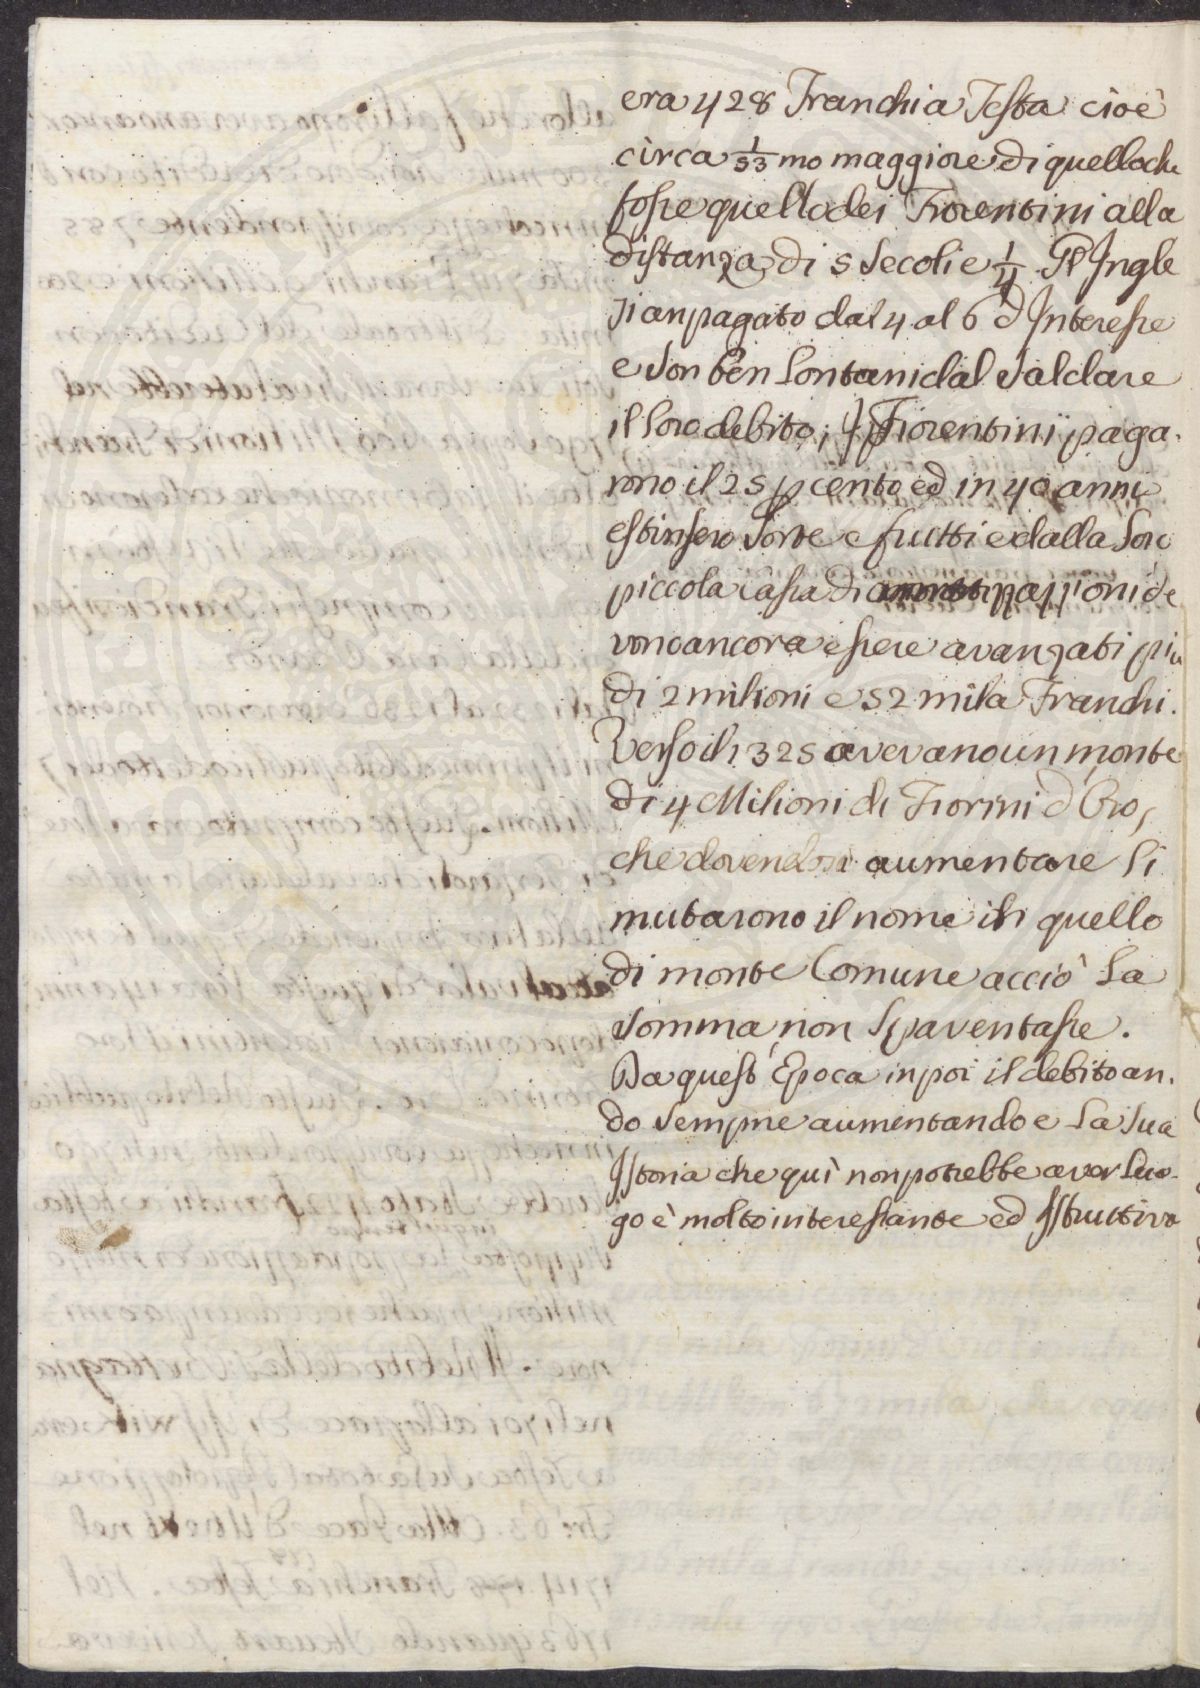 era 428 Franchi a Testa cioè
circa 1/53 mo maggiore di quello che
fosse quello dei Fiorentini alla
distanza di 5 secoli e 1/4. Gl'Ingle
si an pagato dal 4 al 6 d'Interesse
e son ben lontani dal saldare
il loro debito; I Fiorentini paga.
rono il 25 p cento ed in 40 anni
estinsero sorte e frutti e dalla loro
piccola cassa di amortizzazzioni de
vono ancora essere avanzati piu
di 2 milioni e 52 mila Franchi.
Verso il 1325 avevano un monte
di 4 Milioni di Fiorini d'Oro,
che dovendosi aumentare li
mutarono il nome in quello
di monte Comune acciò la
somma non spaventasse.
Da quest'Epoca in poi il debito an.
do sempre aumentando e la sua
Istoria che quì non potrebbe aver luo.
go è molto interessante ed Istruttiva